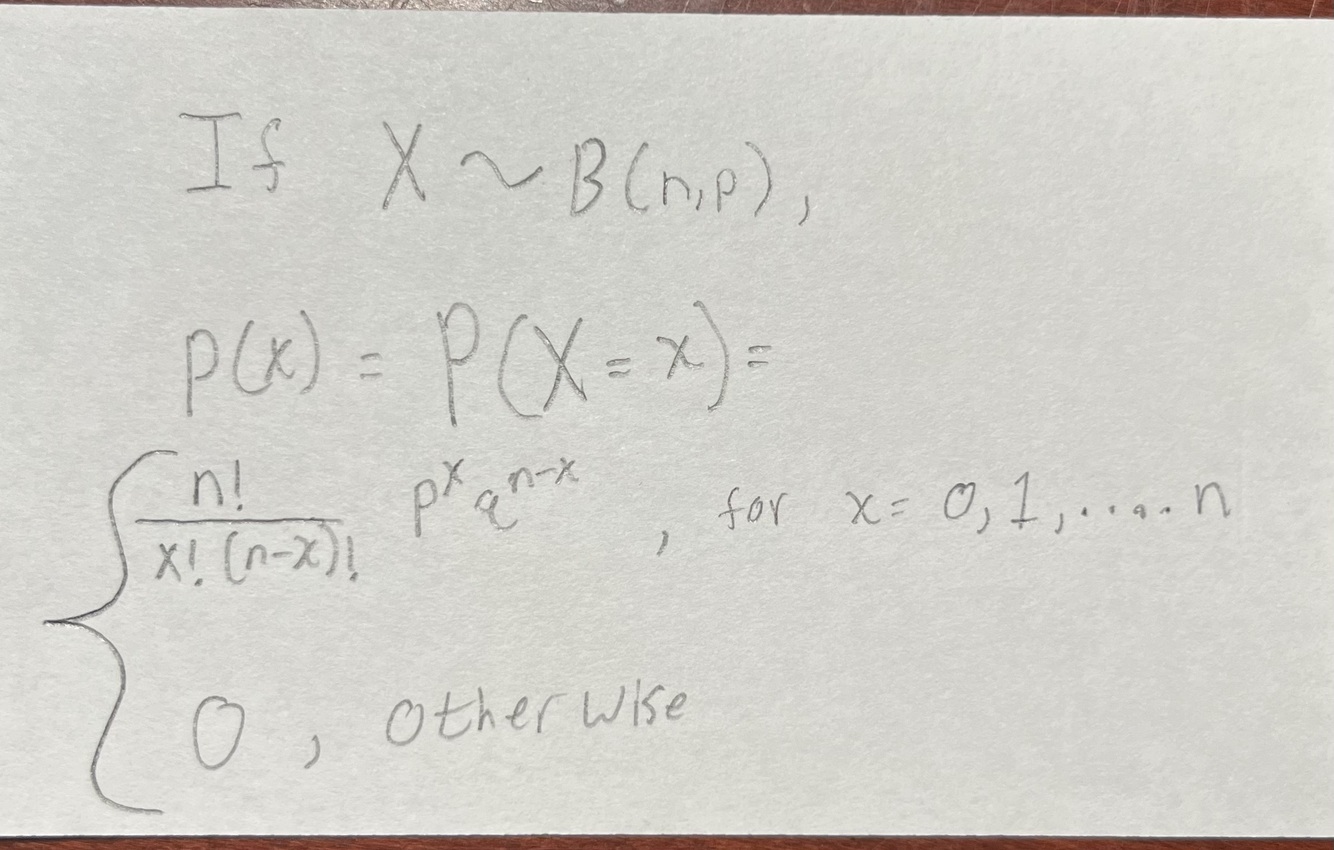 If X ~ B(n,p),
p(x) = P(X = x) =
n!
x! (n-x)! p^x q^{n-x} , for x = 0, 1, ..... n
0 , otherwise